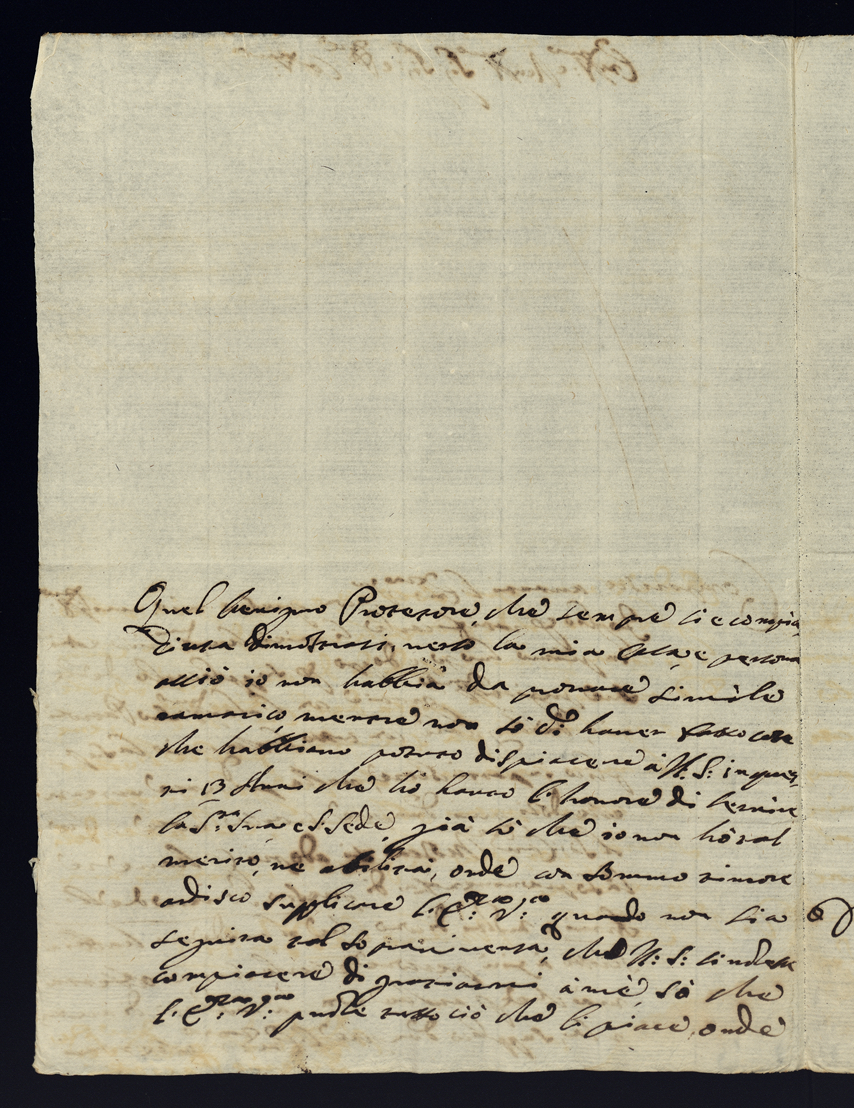 Quel benigno Protetore, che sempre si e compia
ciuta dimostrasi, verso la mia Casa, e persona
acciò io non habbia da provare simile
ramarico, mentre non sò di haver fatto cose
che habbiano potuto dispiacere à N: S: in ques,
ti 13 Anni che hò hauto l'honore di servire
la S.tà Sua e S. Sede, già sò che io non hò tal
merito, ne abilità, onde con sommo timore
ardisco supplicare l'E: V: quando non sia
seguita tal sopravivenza, che N: S: si volesse
compiacere di graziarni à mè, sò che
l'E: V: puole tutto ciò che li piace, onde